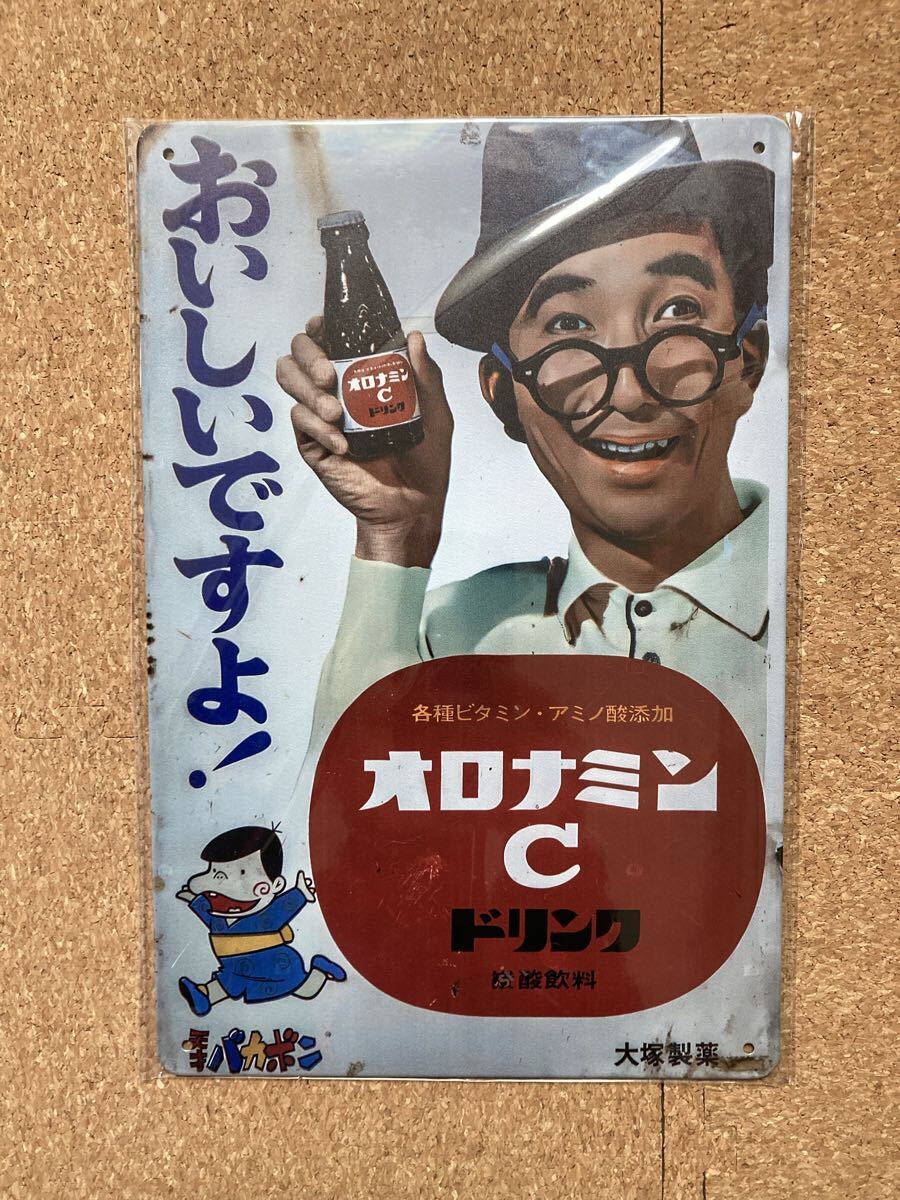 おいしいですよ!
オロナミン
C
ドリンク
各種ビタミン・アミノ酸添加
オロナミン
C
ドリンク
炭酸飲料
元祖
バカボン
大塚製薬